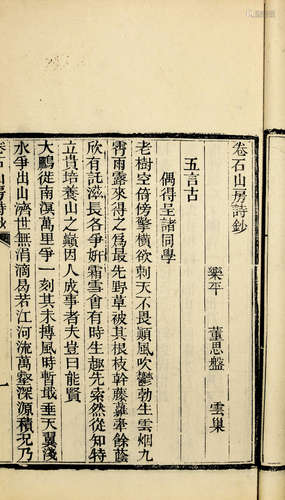 卷石山房詩鈔
樂平　董思盤　雲巢
五言古
偶得呈諸同學
老樹空倚傍擎橫欲刺天不畏顚風吹鬱勃生雲烟九
霄雨露來得之爲最先野草被其根枝幹藤蘿牽餘蔭
欣有託滋長各爭妍霜雪會有時生趣先索然從知特
立貴培養山之巓因人成事者夫豈曰能賢
大鵬徙南溟萬里爭一刻其未搏風時暫戢垂天翼淺
水爭出山濟世無涓滴曷若江河流萬壑深源積況乃
卷石山房詩鈔
一